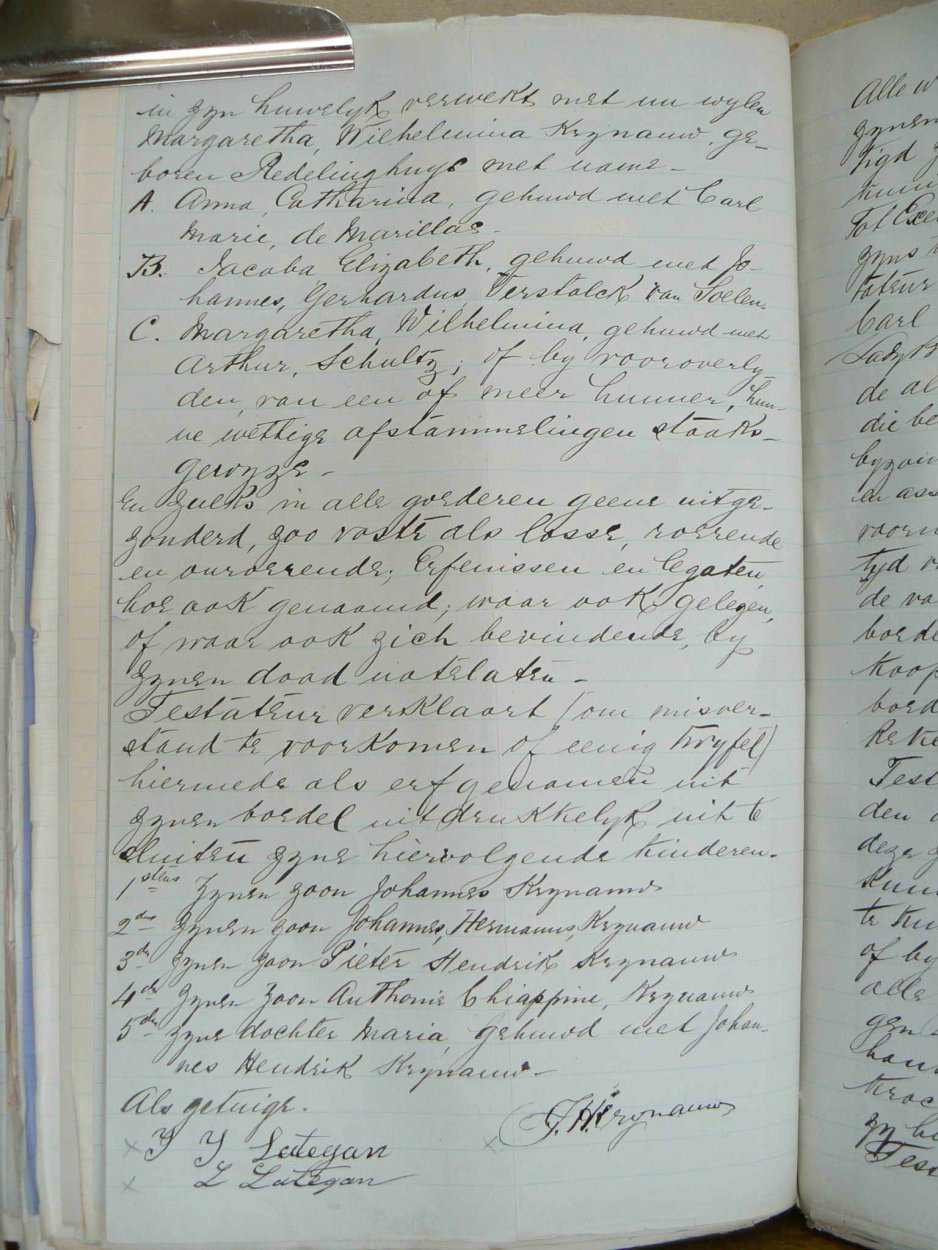 in zyn huwelyk verwekt met nu wylen
Margaretha, Wilhelmina Krynauw, ge-
boren Redelinghuys met name -
A. Anna, Catharina, gehuwd met Carl
Marie, de Marillac -
B. Jacoba Elizabeth, gehuwd met Jo-
hannes, Gerhardus, Verstolck van Soelen,
C. Margaretha, Wilhelmina, gehuwd met
Arthur, Schultz; of by vooroverly-
den, van een of meer hunner, hun-
ne wettige afstammelingen staaks-
gewyze -
En zulks in alle goederen geene uitge-
zonderd, zoo vaste als losse, roerende
en onroerende; Erfenissen en legaten,
hoe ook genaamd; waar ook gelegen,
of waar ook zich bevindende, by
zynen dood natelaten -
Testateur verklaart (om misver-
stand te voorkomen of eenig twyfel)
hiermede als erfgenamen uit
zynen boedel uitdrukkelyk uit te
sluiten zyne hiervolgende kinderen -
1stens Zynen zoon Johannes Krynauw
2de zynen zoon Johannes, Hermanus, Krynauw
3de zynen zoon Pieter Hendrik Krynauw
4de zynen zoon Anthonie Chiappini, Krynauw
5de zyne dochter Maria, gehuwd met Johan-
nes Hendrik Krynauw -
Als getuige.
J. H. Krynauw
x Y Y Lategan x
x L Lategan
Alle w
zynen
tot Exe
zyns
tateur
Carl
Lady
de al
die be
byzon
en ass
voorn
tyd v
de va
boede
koop
boed
Reke
Test
den
deze
kun
te
of by
alle
gen
han
troc
zy
Test